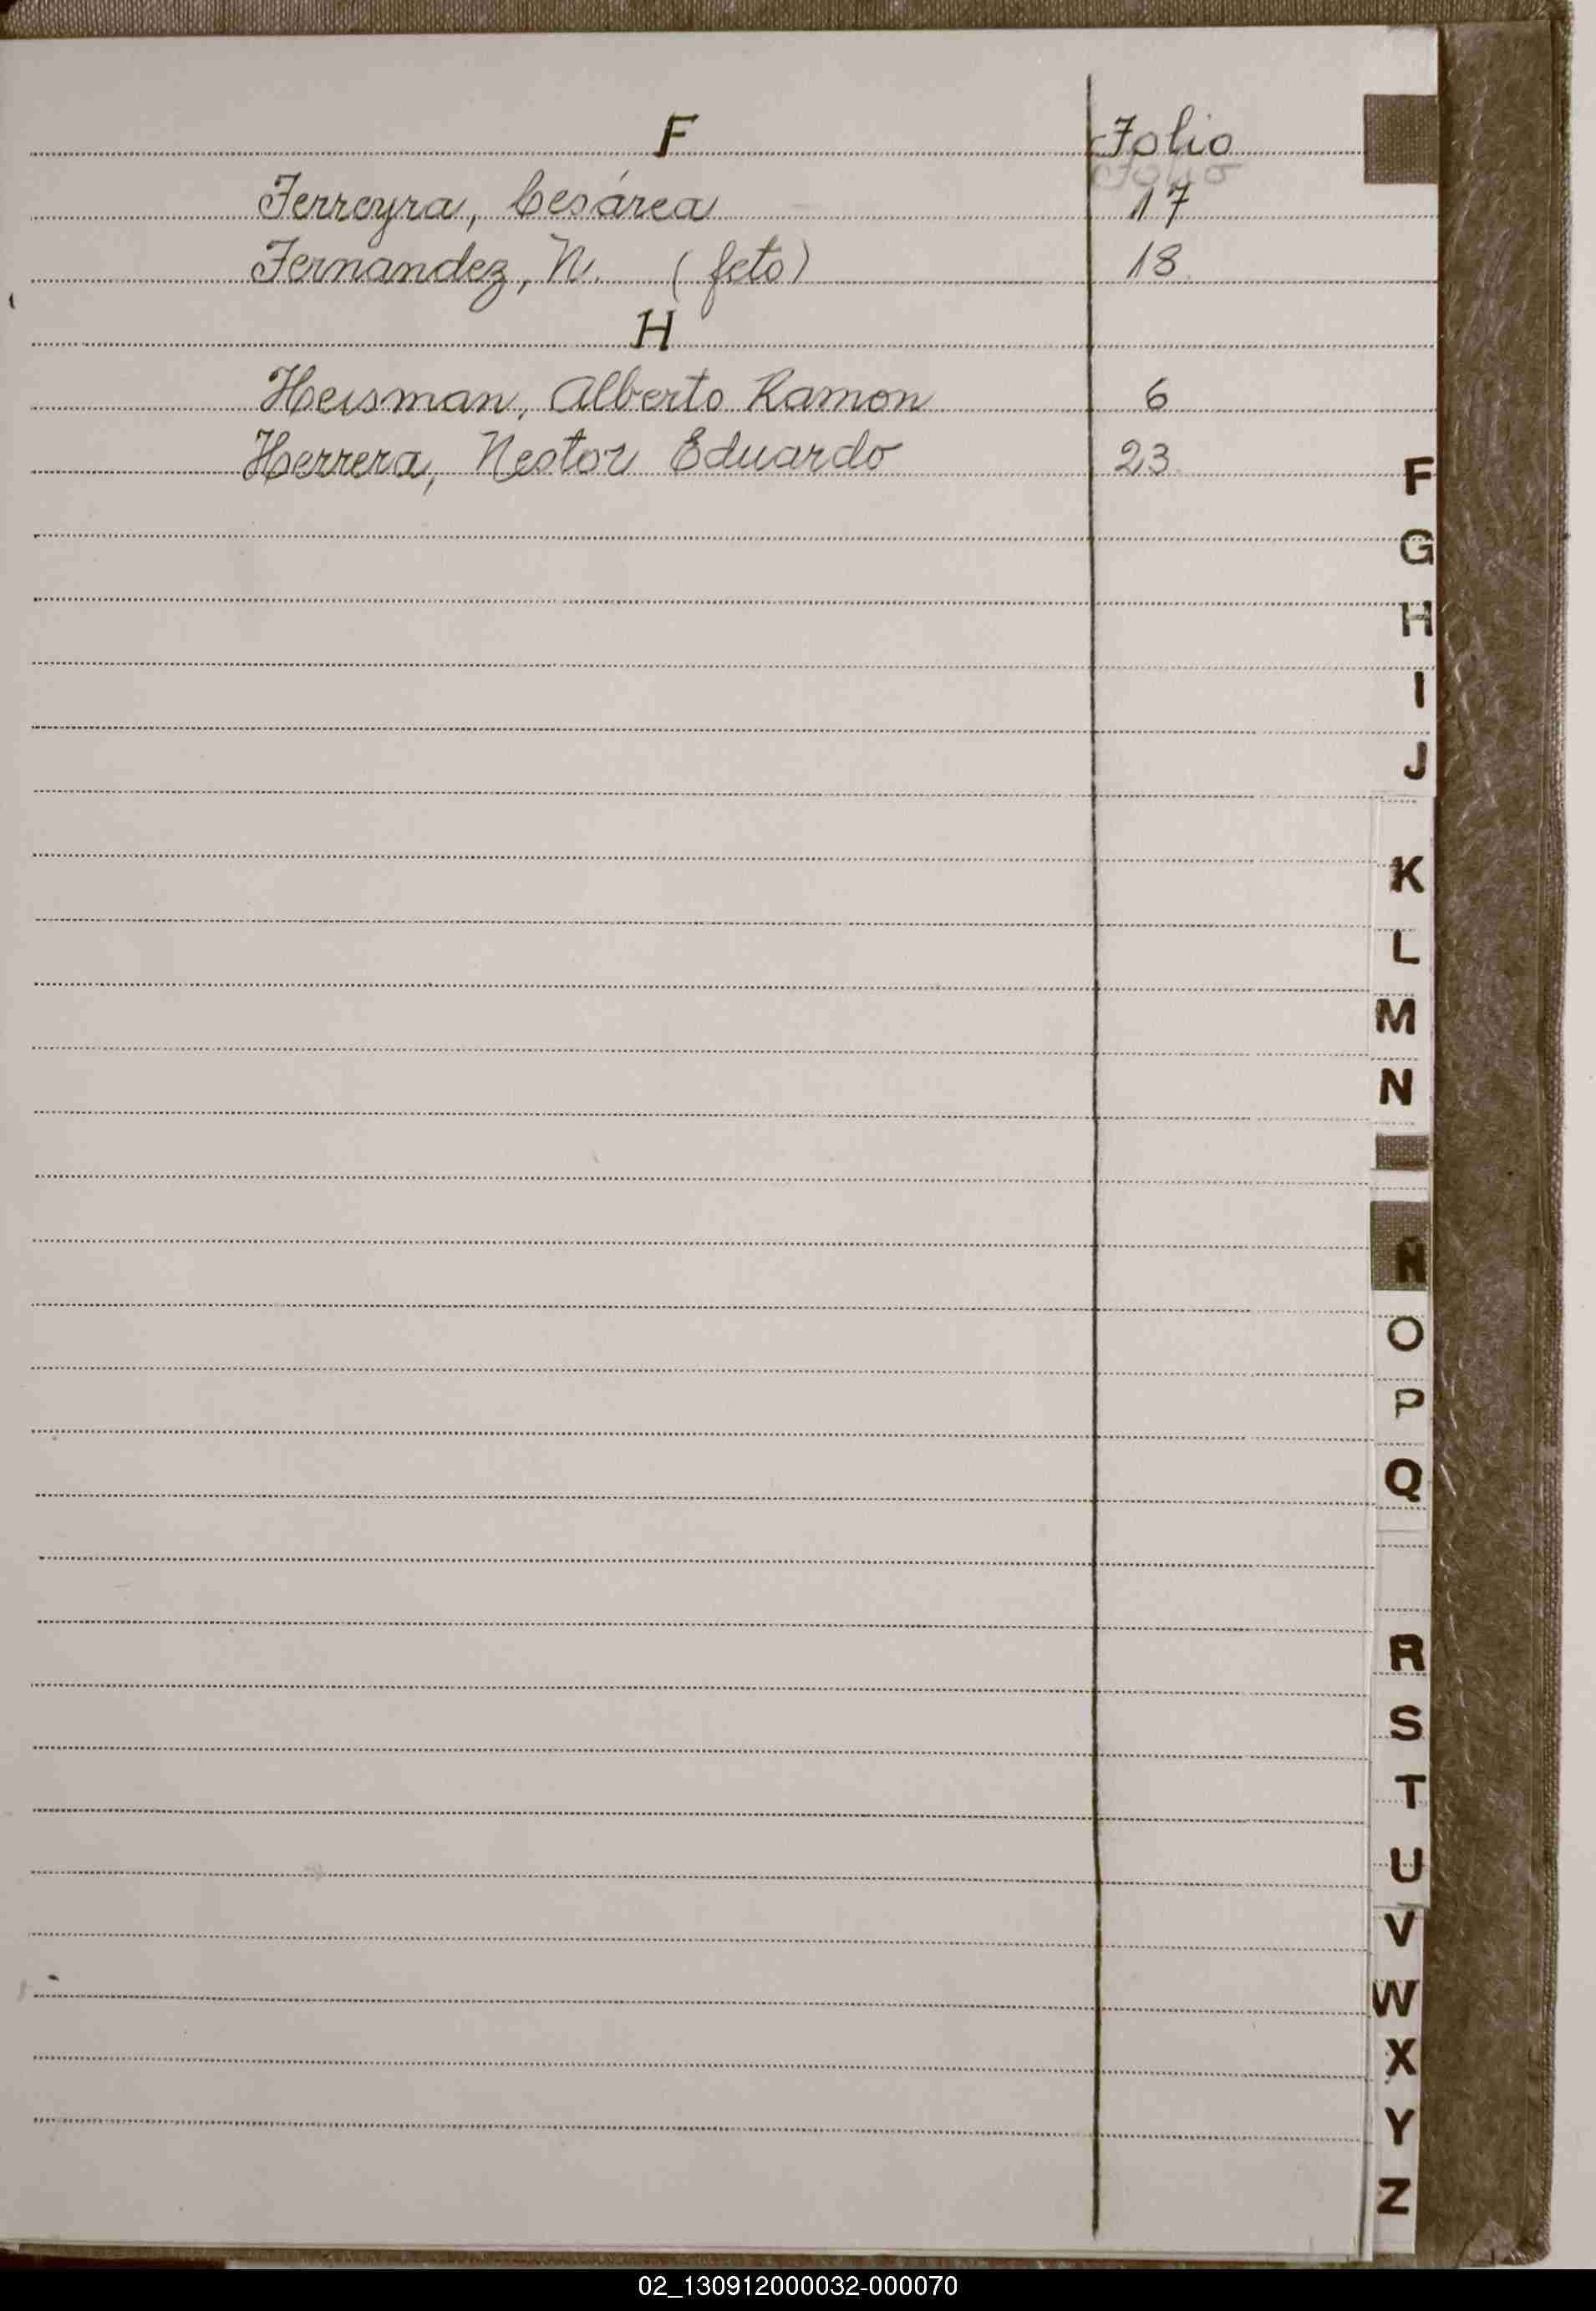 F Folio
Ferreyra, Cesárea 17
Fernandez, N. (feto) 18
H
Heisman, Alberto Ramon 6
Herrera, Nestor Eduardo 23
F
G
H
I
J
K
L
M
N
Ñ
O
P
Q
R
S
T
U
V
W
X
Y
Z
02_130912000032-000070